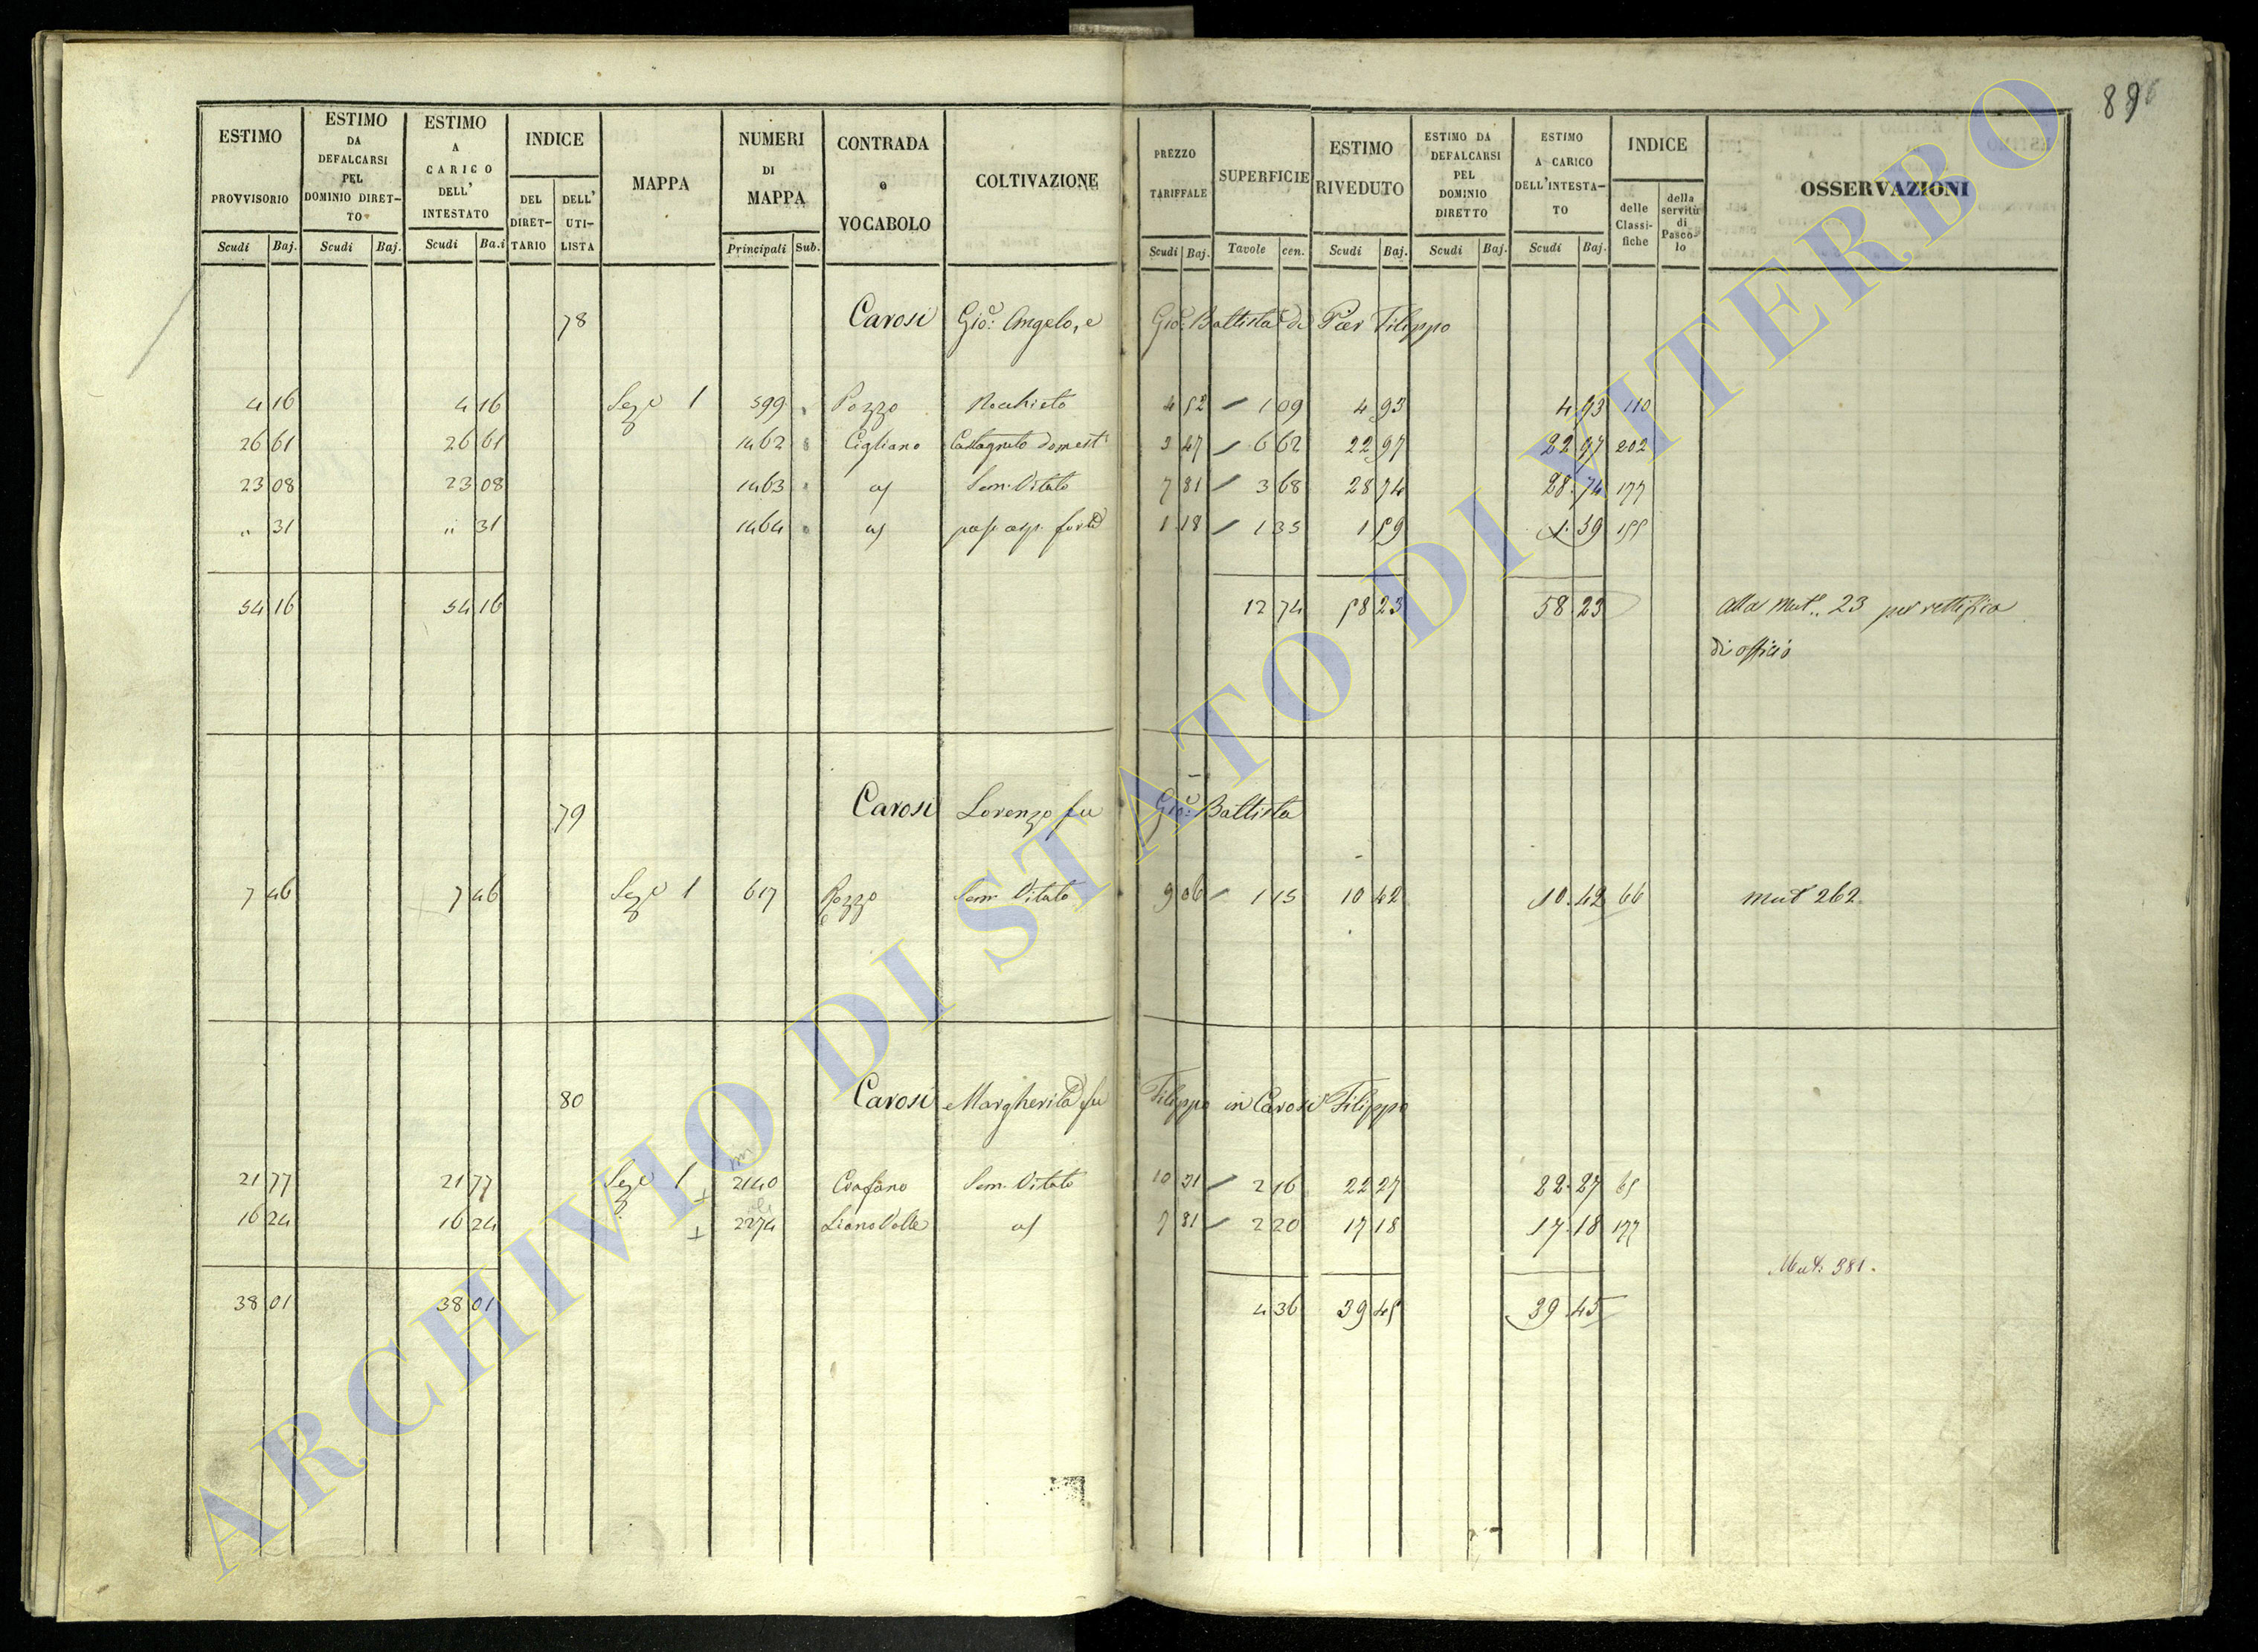 89
ESTIMO PROVVISORIO Scudi Baj. | ESTIMO DA DEFALCARSI PEL DOMINIO DIRETTO Scudi Baj. | ESTIMO A CARICO DELL' INTESTATO Scudi Ba.i | INDICE DEL DIRETTARIO DELL' UTILISTA | MAPPA | NUMERI DI MAPPA Principali Sub. | CONTRADA e VOCABOLO | COLTIVAZIONE | PREZZO TARIFFALE Scudi Baj. | SUPERFICIE Tavole cen. | ESTIMO RIVEDUTO Scudi Baj. | ESTIMO DA DEFALCARSI PEL DOMINIO DIRETTO Scudi Baj. | ESTIMO A CARICO DELL'INTESTATO Scudi Baj. | INDICE delle Classifiche della servitù di Pascolo | OSSERVAZIONI
78 Carosi Gio: Angelo, e Gio: Battista di Pier Filippo
4 16 4 16 Sez.e 1 599 Pozzo 4 52 1 09 4 93 4 93 110
26 61 26 61 1462 Cigliano Castagneto domest. 3 47 6 62 22 97 22 97 202
23 08 23 08 1463 Sem. Vitato 7 81 3 68 28 74 28 74 177
" 31 " 31 1464 1 18 1 35 1 59 1 59 155
54 16 54 16 12 74 58 23 58 23 Alla Mut.. 23 per rettifica
di officio
79 Carosi Lorenzo fu Gio: Battista
7 46 7 46 Sez.e 1 617 Pozzo Sem. Vitato 9 06 1 15 10 42 10 42 66 Mut 262
80 Carosi Margherita fu Filippo in Carosi Filippo
21 77 21 77 Sez.e 1 2140 Sem. Vitato 10 31 2 16 22 27 22 27 65
16 24 16 24 2274 7 81 2 20 17 18 17 18 177
Mut: 381.
38 01 38 01 4 36 39 45 39 45
ARCHIVIO DI STATO DI VITERBO